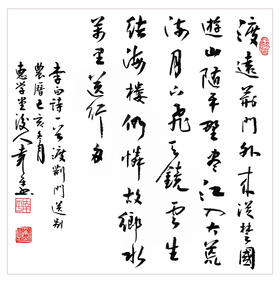 渡遠荊門外來從楚國
遊山隨平野盡江入大荒
流月下飛天鏡雲生
結海樓仍憐故鄉水
萬里送行舟
李白詩一首渡荊門送別
農曆己亥冬月
学堂後人